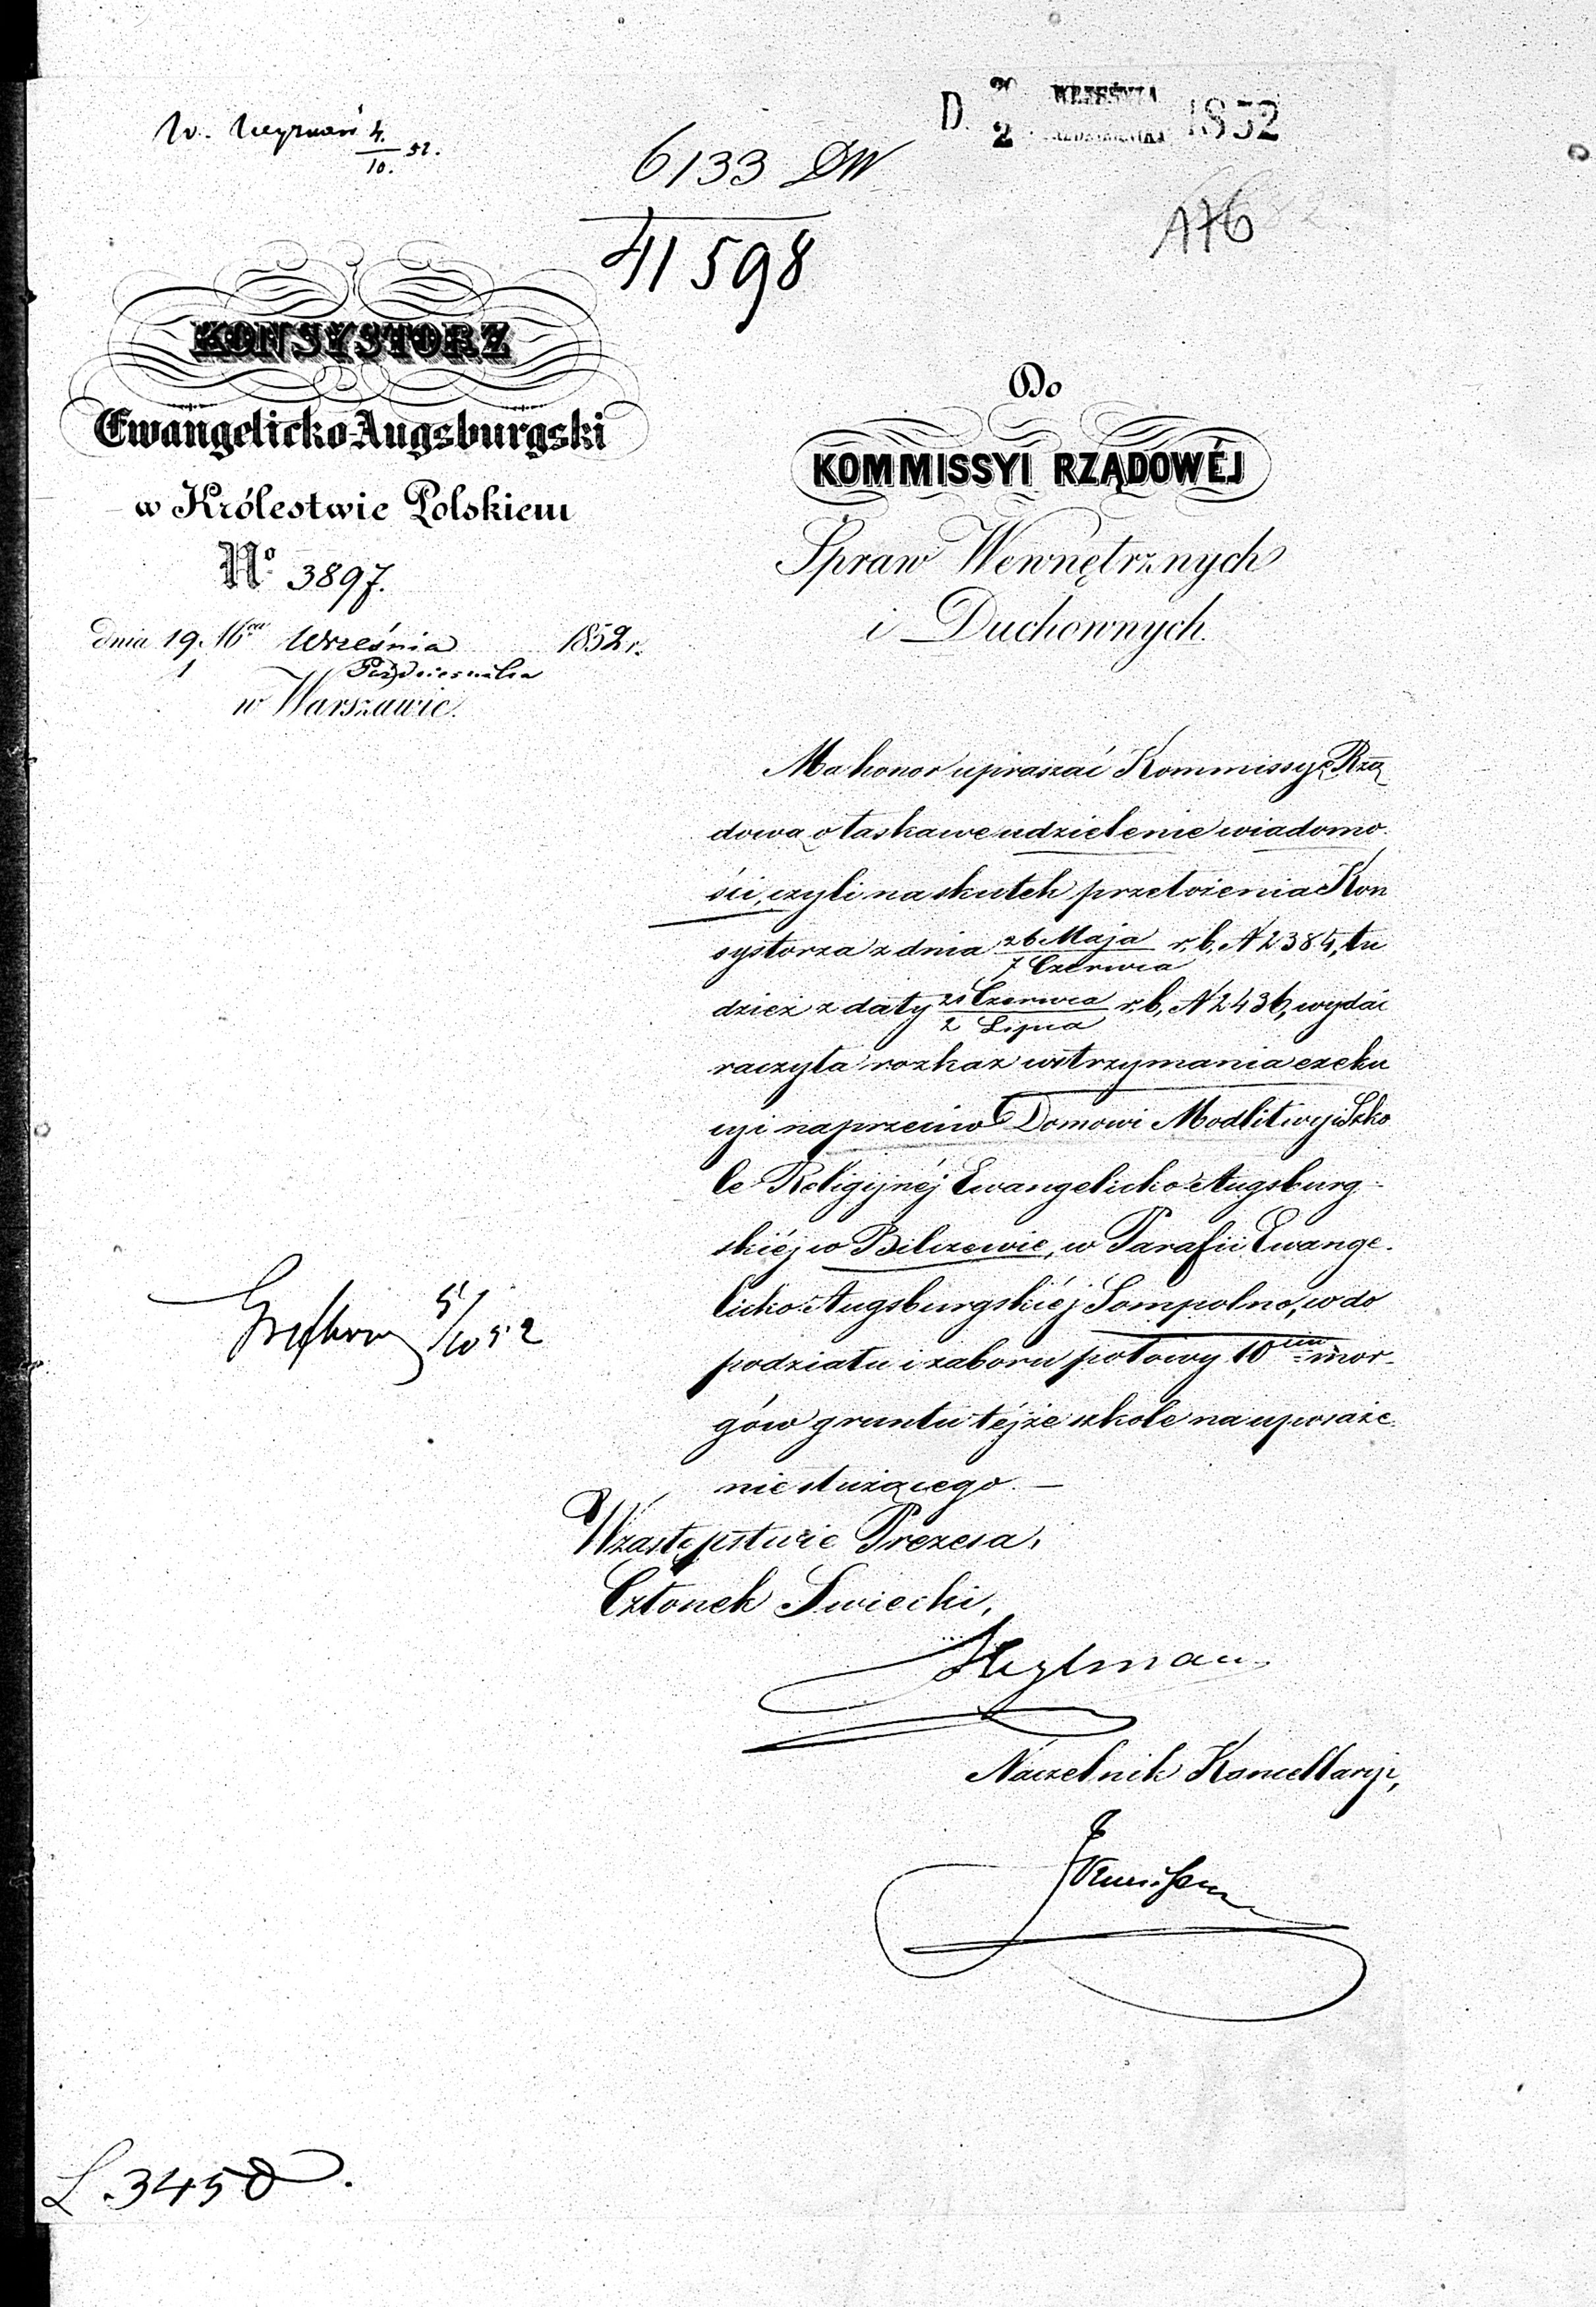 4./10. 52.
6133 DW
41598
D. 20 WRZEŚNIA 1852
2 PAŹDZIERNIKA
176
KONSYSTORZ
Ewangelicko-Augsburgski
w Królestwie Polskiem
No 3897.
dnia 19. Września 1852 r.
1 Października
w Warszawie.
Do
KOMMISSYI RZĄDOWÉJ
Spraw Wewnętrznych
i Duchownych.
Ma honor upraszać Kommissyę Rzą
dową o łaskawe udzielenie wiadomo-
ści, czyli na skutek przełożenia Kon
systorza z dnia 26 Maja / 7 Czerwca r. b. N 2384, tu
dzież z daty 20 Czerwca / 2 Lipca r. b. N 2436, wydać
raczyła rozkaz wstrzymania exeku
cyi naprzeciw Domowi Modlitwy i Szko
le Religijnéj Ewangelicko Augsburg-
skiéj w Bilczewie, w Parafii Ewange-
licko Augsburgskiéj Sompolno, w do
podziału i zaboru połowy 10ciu mor-
gów gruntu téjże szkole na uposaże-
nie służącego. —
W zastępstwie Prezesa,
Członek Swiecki,
Heylman
Naczelnik Kancellaryi,
5/10 52
L. 3450.